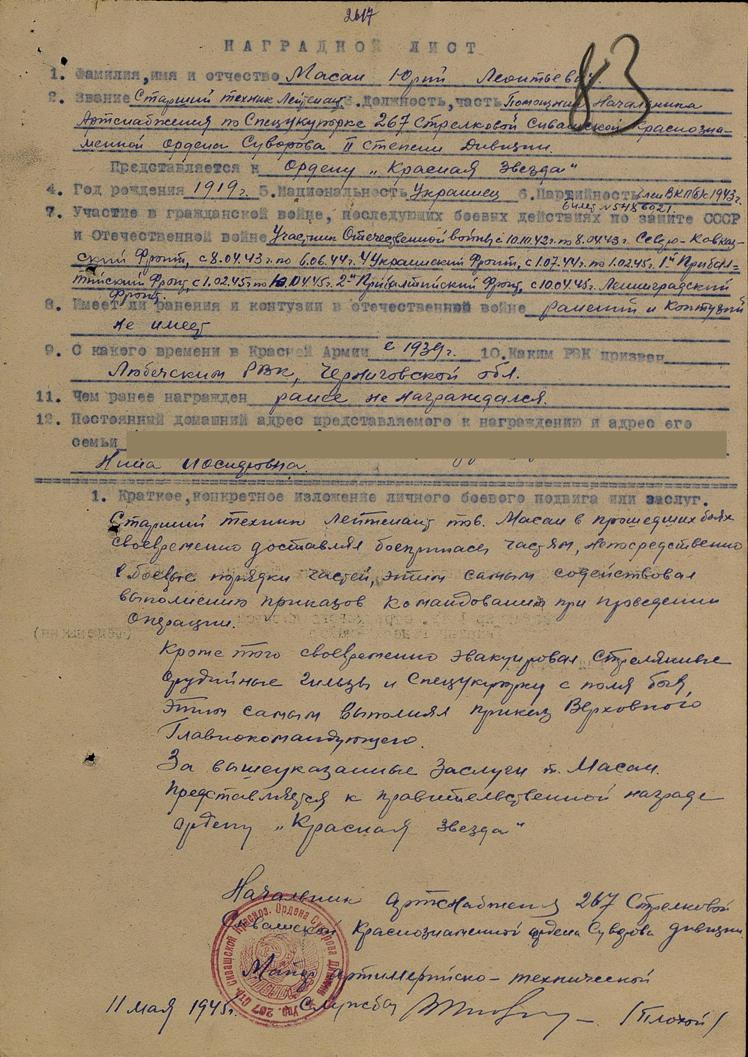 2617
83
НАГРАДНОЙ ЛИСТ
1. Фамилия, имя и отчество Масан Юрий Леонтьевич
2. Звание Старший техник Лейтенант 3. Должность, часть Помощник Начальника
Артснабжения по Спецукупорке 267 Стрелковой Сивашской Краснозна-
менной ордена Суворова II степени Дивизии.
Представляется к Ордену „Красная Звезда"
4. Год рождения 1919 г. 5. Национальность Украинец 6. Партийность член ВКПбс 1943 г.
билет № 5486021
7. Участие в гражданской войне, последующих боевых действиях по защите СССР
и Отечественной войне Участник Отечественной войны с 10.10.42 г. по 8.04.43 г. Северо-Кавказ-
ский Фронт, с 8.04.43 г. по 6.06.44 г. 4 Украинский Фронт, с 1.07.44 г. по 1.02.45 г. 1й Прибал-
тийский Фронт, с 1.02.45 г. по 10.04.45 г. 2й Прибалтийский Фронт, с 10.04.45 г. Ленинградский
Фронт.
8. Имеет ли ранения и контузии в отечественной войне ранений и Контузий
не имеет
9. С какого времени в Красной Армии с 1939 г. 10. Каким РВК призван
Любечским РВК, Черниговской обл.
11. Чем ранее награжден ранее не награждался.
12. Постоянный домашний адрес представляемого к награждению и адрес его
семьи
Нина Иосифовна.
1. Краткое, конкретное изложение личного боевого подвига или заслуг.
Старший техник Лейтенант тов. Масан в прошедших боях
своевременно доставлял боеприпасы частям, непосредственно
в боевые порядки частей, этим самым содействовал
выполнению приказов командования при проведении
операции.
Кроме того своевременно эвакуировал Стрелянные
орудийные гильзы и Спецукупорку с поля боя,
этим самым выполнял приказ Верховного
Главнокомандующего.
За вышеуказанные Заслуги т. Масан
представляется к правительственной награде
ордену „Красная Звезда"
Начальник Артснабжения 267 Стрелковой
Сивашской Краснознаменной ордена Суворова дивизии
Майор артиллерийско-технической
11 мая 1945 г. Службы (Плохой)